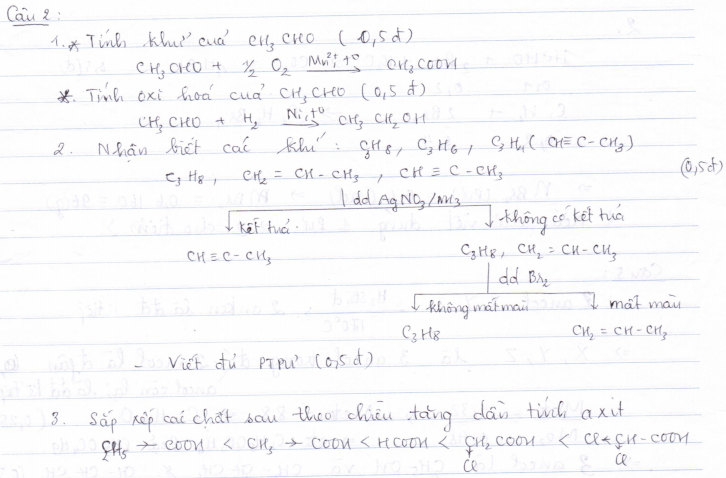 Câu 2:
1. * Tính khử của CH3 CHO ( 0,5 đ)
CH3 CHO + 1/2 O2 Mn2+, t0 → CH3COOH
*. Tính oxi hoá của CH3 CHO (0,5 đ)
CH3 CHO + H2 Ni, t0 → CH3 CH2 OH
2. Nhận biết các khí: C3H8, C3H6, C3H4 ( CH≡C-CH3)
C3H8, CH2 = CH - CH3, CH ≡ C - CH3 (0,5đ)
dd AgNO3/NH3
kết tủa. không có kết tủa
CH ≡ C - CH3 C3H8, CH2 = CH - CH3
dd Br2
không mất màu mất màu
C3H8 CH2 = CH - CH3
- Viết đủ PTPƯ (0,5 đ)
3. Sắp xếp các chất sau theo chiều tăng dần tính axit
C2H5 → COOH < CH3 → COOH < HCOOH < CH2 COOH < Cl ← CH - COOH
Cl Cl